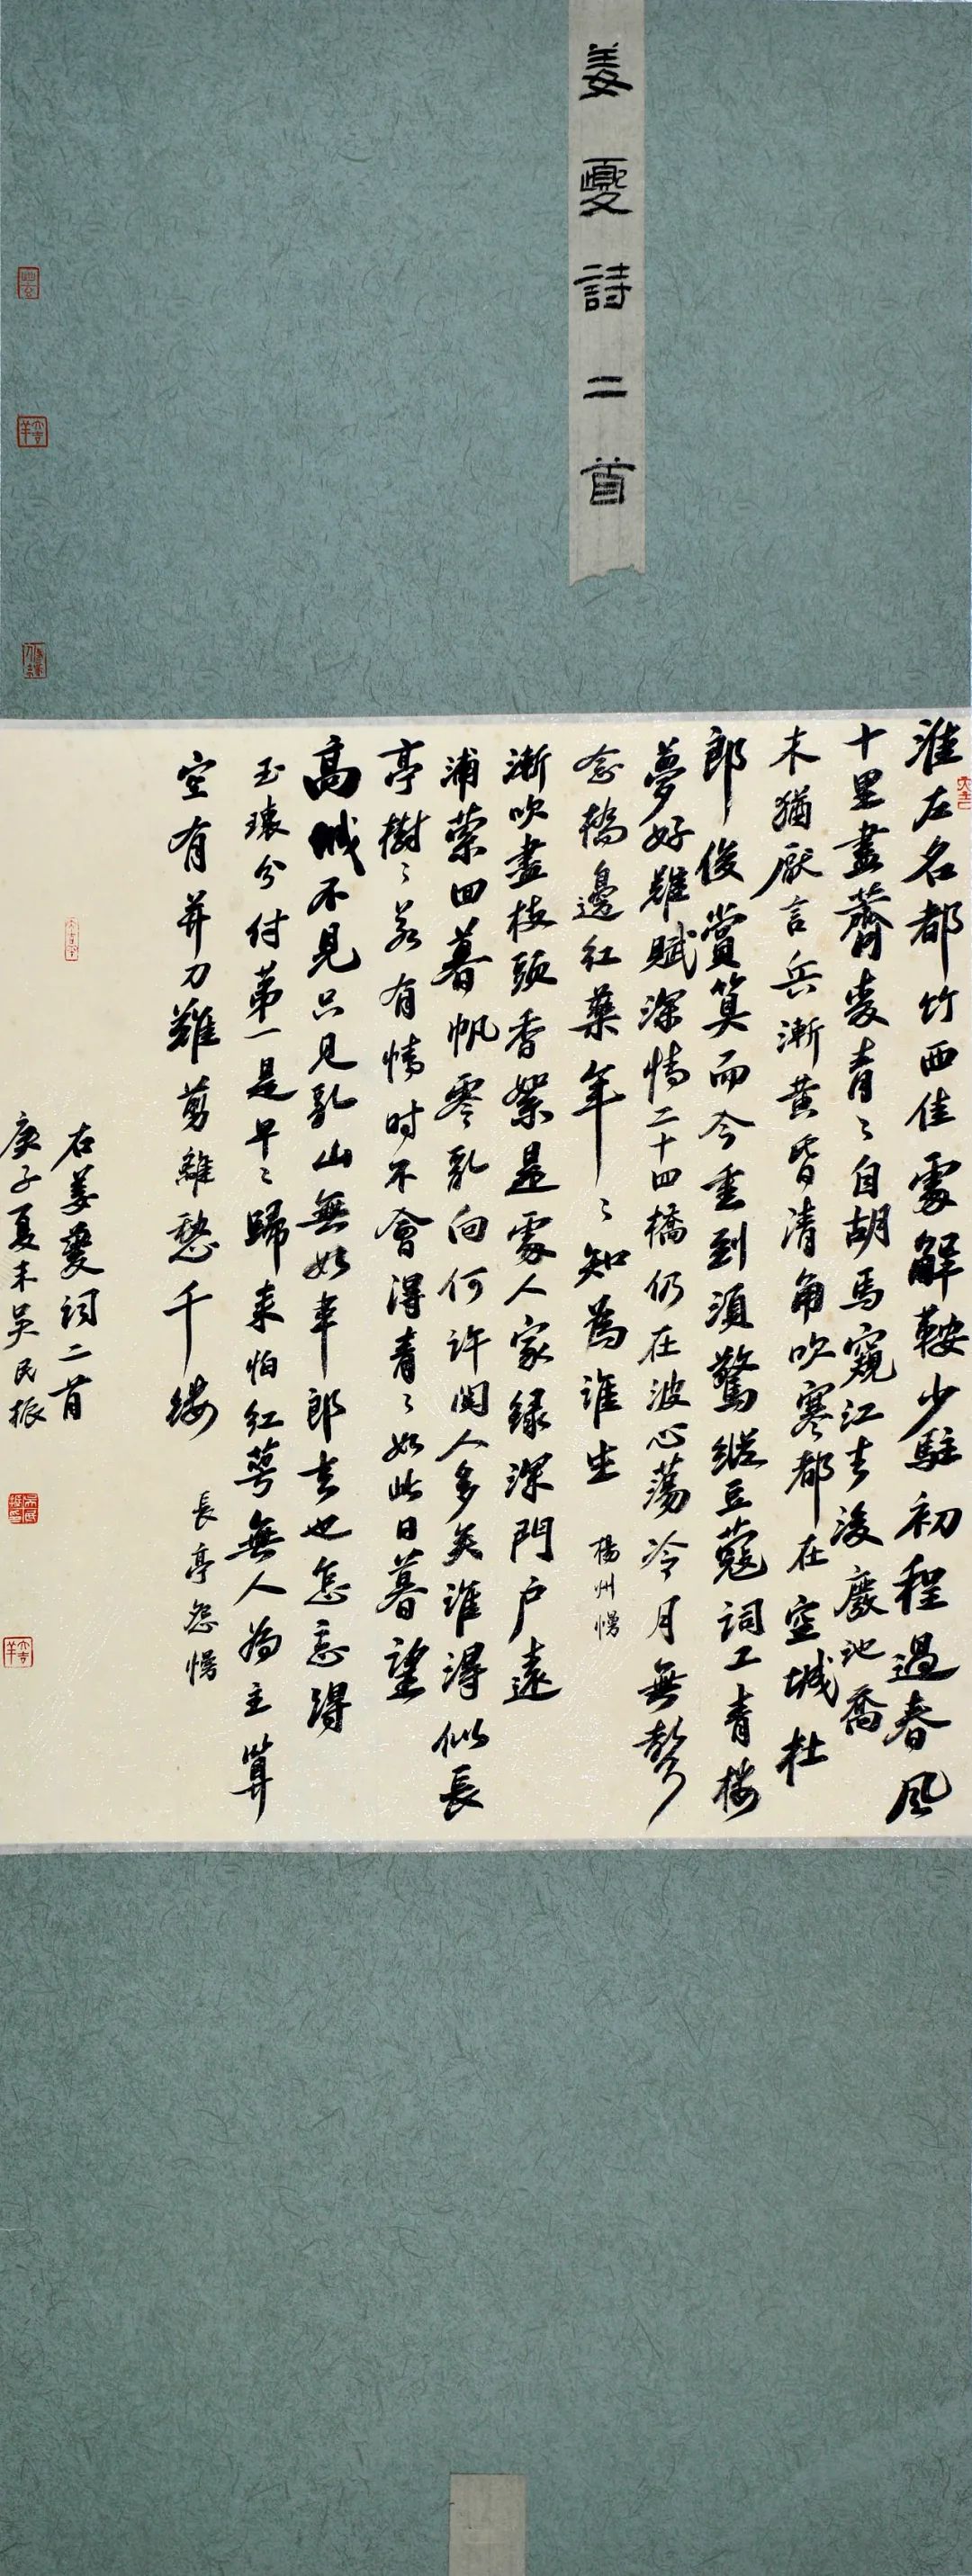 姜夔詩二首
淮左名都竹西佳處解鞍少駐初程過春風
十里盡薺麥青〻自胡馬窺江去後廢池喬
木猶厭言兵漸黃昏清角吹寒都在空城杜
郎俊賞算而今重到須驚縱豆蔻詞工青樓
夢好難賦深情二十四橋仍在波心蕩冷月無聲
念橋邊紅藥年〻知為誰生 楊州慢
漸吹盡枝頭香絮是處人家綠深門戶遠
浦縈回暮帆零亂向何許閱人多矣誰得似長
亭樹〻若有情時不會得青〻如此日暮望
高城不見只見亂山無數韋郎去也怎忘得
玉環分付第一是早〻歸來怕紅萼無人為主算
空有并刀難剪離愁千縷 長亭怨慢
右姜夔詞二首
庚子夏末吳民振